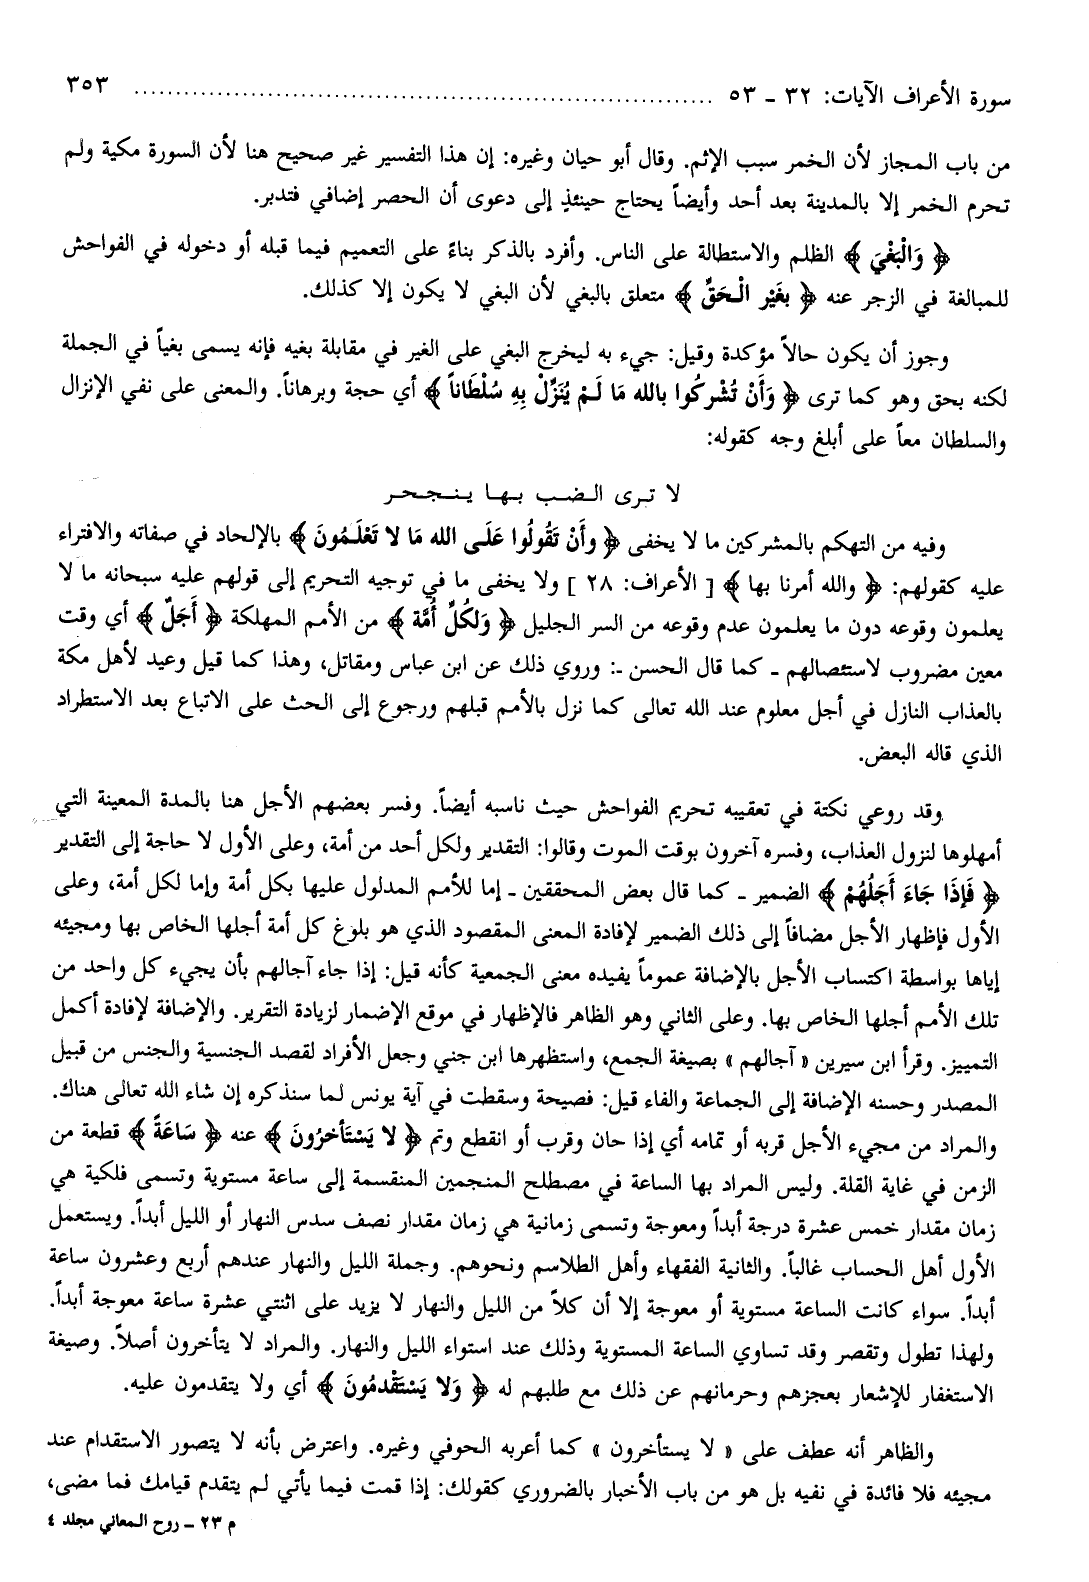 سورة الأعراف الآيات: ٣٢ ـ ٥٣ ........................................................................ ٣٥٣
من باب المجاز لأن الخمر سبب الإثم. وقال أبو حيان وغيره: إن هذا التفسير غير صحيح هنا لأن السورة مكية ولم
تحرم الخمر إلا بالمدينة بعد أحد وأيضاً يحتاج حينئذٍ إلى دعوى أن الحصر إضافي فتدبر.
﴿ وَالْبَغْيَ ﴾ الظلم والاستطالة على الناس. وأفرد بالذكر بناءً على التعميم فيما قبله أو دخوله في الفواحش
للمبالغة في الزجر عنه ﴿ بغَيْر الْحَقِّ ﴾ متعلق بالبغي لأن البغي لا يكون إلا كذلك.
وجوز أن يكون حالاً مؤكدة وقيل: جيء به ليخرج البغي على الغير في مقابلة بغيه فإنه يسمى بغياً في الجملة
لكنه بحق وهو كما ترى ﴿ وَأَنْ تُشْركُوا بالله مَا لَمْ يُنَزِّلْ بِهِ سُلْطَاناً ﴾ أي حجة وبرهاناً. والمعنى على نفي الإنزال
والسلطان معاً على أبلغ وجه كقوله:
لا تـرى الـضـب بـهـا يـنـجـحـر
وفيه من التهكم بالمشركين ما لا يخفى ﴿ وأَنْ تَقُولُوا عَلَى الله مَا لا تَعْلَمُونَ ﴾ بالإلحاد في صفاته والافتراء
عليه كقولهم: ﴿ والله أمرنا بها ﴾ [ الأعراف: ٢٨ ] ولا يخفى ما في توجيه التحريم إلى قولهم عليه سبحانه ما لا
يعلمون وقوعه دون ما يعلمون عدم وقوعه من السر الجليل ﴿ وَلكُلِّ أُمَّة ﴾ من الأمم المهلكة ﴿ أَجَلٌ ﴾ أي وقت
معين مضروب لاستئصالهم ـ كما قال الحسن ـ: وروي ذلك عن ابن عباس ومقاتل، وهذا كما قيل وعيد لأهل مكة
بالعذاب النازل في أجل معلوم عند الله تعالى كما نزل بالأمم قبلهم ورجوع إلى الحث على الاتباع بعد الاستطراد
الذي قاله البعض.
وقد روعي نكتة في تعقيبه تحريم الفواحش حيث ناسبه أيضاً. وفسر بعضهم الأجل هنا بالمدة المعينة التي
أمهلوها لنزول العذاب، وفسره آخرون بوقت الموت وقالوا: التقدير ولكل أحد من أمة، وعلى الأول لا حاجة إلى التقدير
﴿ فَإِذَا جَاءَ أَجَلُهُمْ ﴾ الضمير ـ كما قال بعض المحققين ـ إما للأمم المدلول عليها بكل أمة وإما لكل أمة، وعلى
الأول فإظهار الأجل مضافاً إلى ذلك الضمير لإفادة المعنى المقصود الذي هو بلوغ كل أمة أجلها الخاص بها ومجيئه
إياها بواسطة اكتساب الأجل بالإضافة عموماً يفيده معنى الجمعية كأنه قيل: إذا جاء آجالهم بأن يجيء كل واحد من
تلك الأمم أجلها الخاص بها. وعلى الثاني وهو الظاهر فالإظهار في موقع الإضمار لزيادة التقرير. والإضافة لإفادة أكمل
التمييز. وقرأ ابن سيرين « آجالهم » بصيغة الجمع، واستظهرها ابن جني وجعل الأفراد لقصد الجنسية والجنس من قبيل
المصدر وحسنه الإضافة إلى الجماعة والفاء قيل: فصيحة وسقطت في آية يونس لما سنذكره إن شاء الله تعالى هناك.
والمراد من مجيء الأجل قربه أو تمامه أي إذا حان وقرب أو انقطع وتم ﴿ لا يَسْتَأخرُونَ ﴾ عنه ﴿ سَاعَةً ﴾ قطعة من
الزمن في غاية القلة. وليس المراد بها الساعة في مصطلح المنجمين المنقسمة إلى ساعة مستوية وتسمى فلكية هي
زمان مقدار خمس عشرة درجة أبداً ومعوجة وتسمى زمانية هي زمان مقدار نصف سدس النهار أو الليل أبداً. ويستعمل
الأول أهل الحساب غالباً. والثانية الفقهاء وأهل الطلاسم ونحوهم. وجملة الليل والنهار عندهم أربع وعشرون ساعة
أبداً. سواء كانت الساعة مستوية أو معوجة إلا أن كلاً من الليل والنهار لا يزيد على اثنتي عشرة ساعة معوجة أبداً.
ولهذا تطول وتقصر وقد تساوي الساعة المستوية وذلك عند استواء الليل والنهار. والمراد لا يتأخرون أصلاً. وصيغة
الاستغفار للإشعار بعجزهم وحرمانهم عن ذلك مع طلبهم له ﴿ وَلا يَسْتَقْدمُونَ ﴾ أي ولا يتقدمون عليه.
والظاهر أنه عطف على « لا يستأخرون » كما أعربه الحوفي وغيره. واعترض بأنه لا يتصور الاستقدام عند
مجيئه فلا فائدة في نفيه بل هو من باب الأخبار بالضروري كقولك: إذا قمت فيما يأتي لم يتقدم قيامك فما مضى،
م ٢٣ ـ روح المعاني مجلد ٤